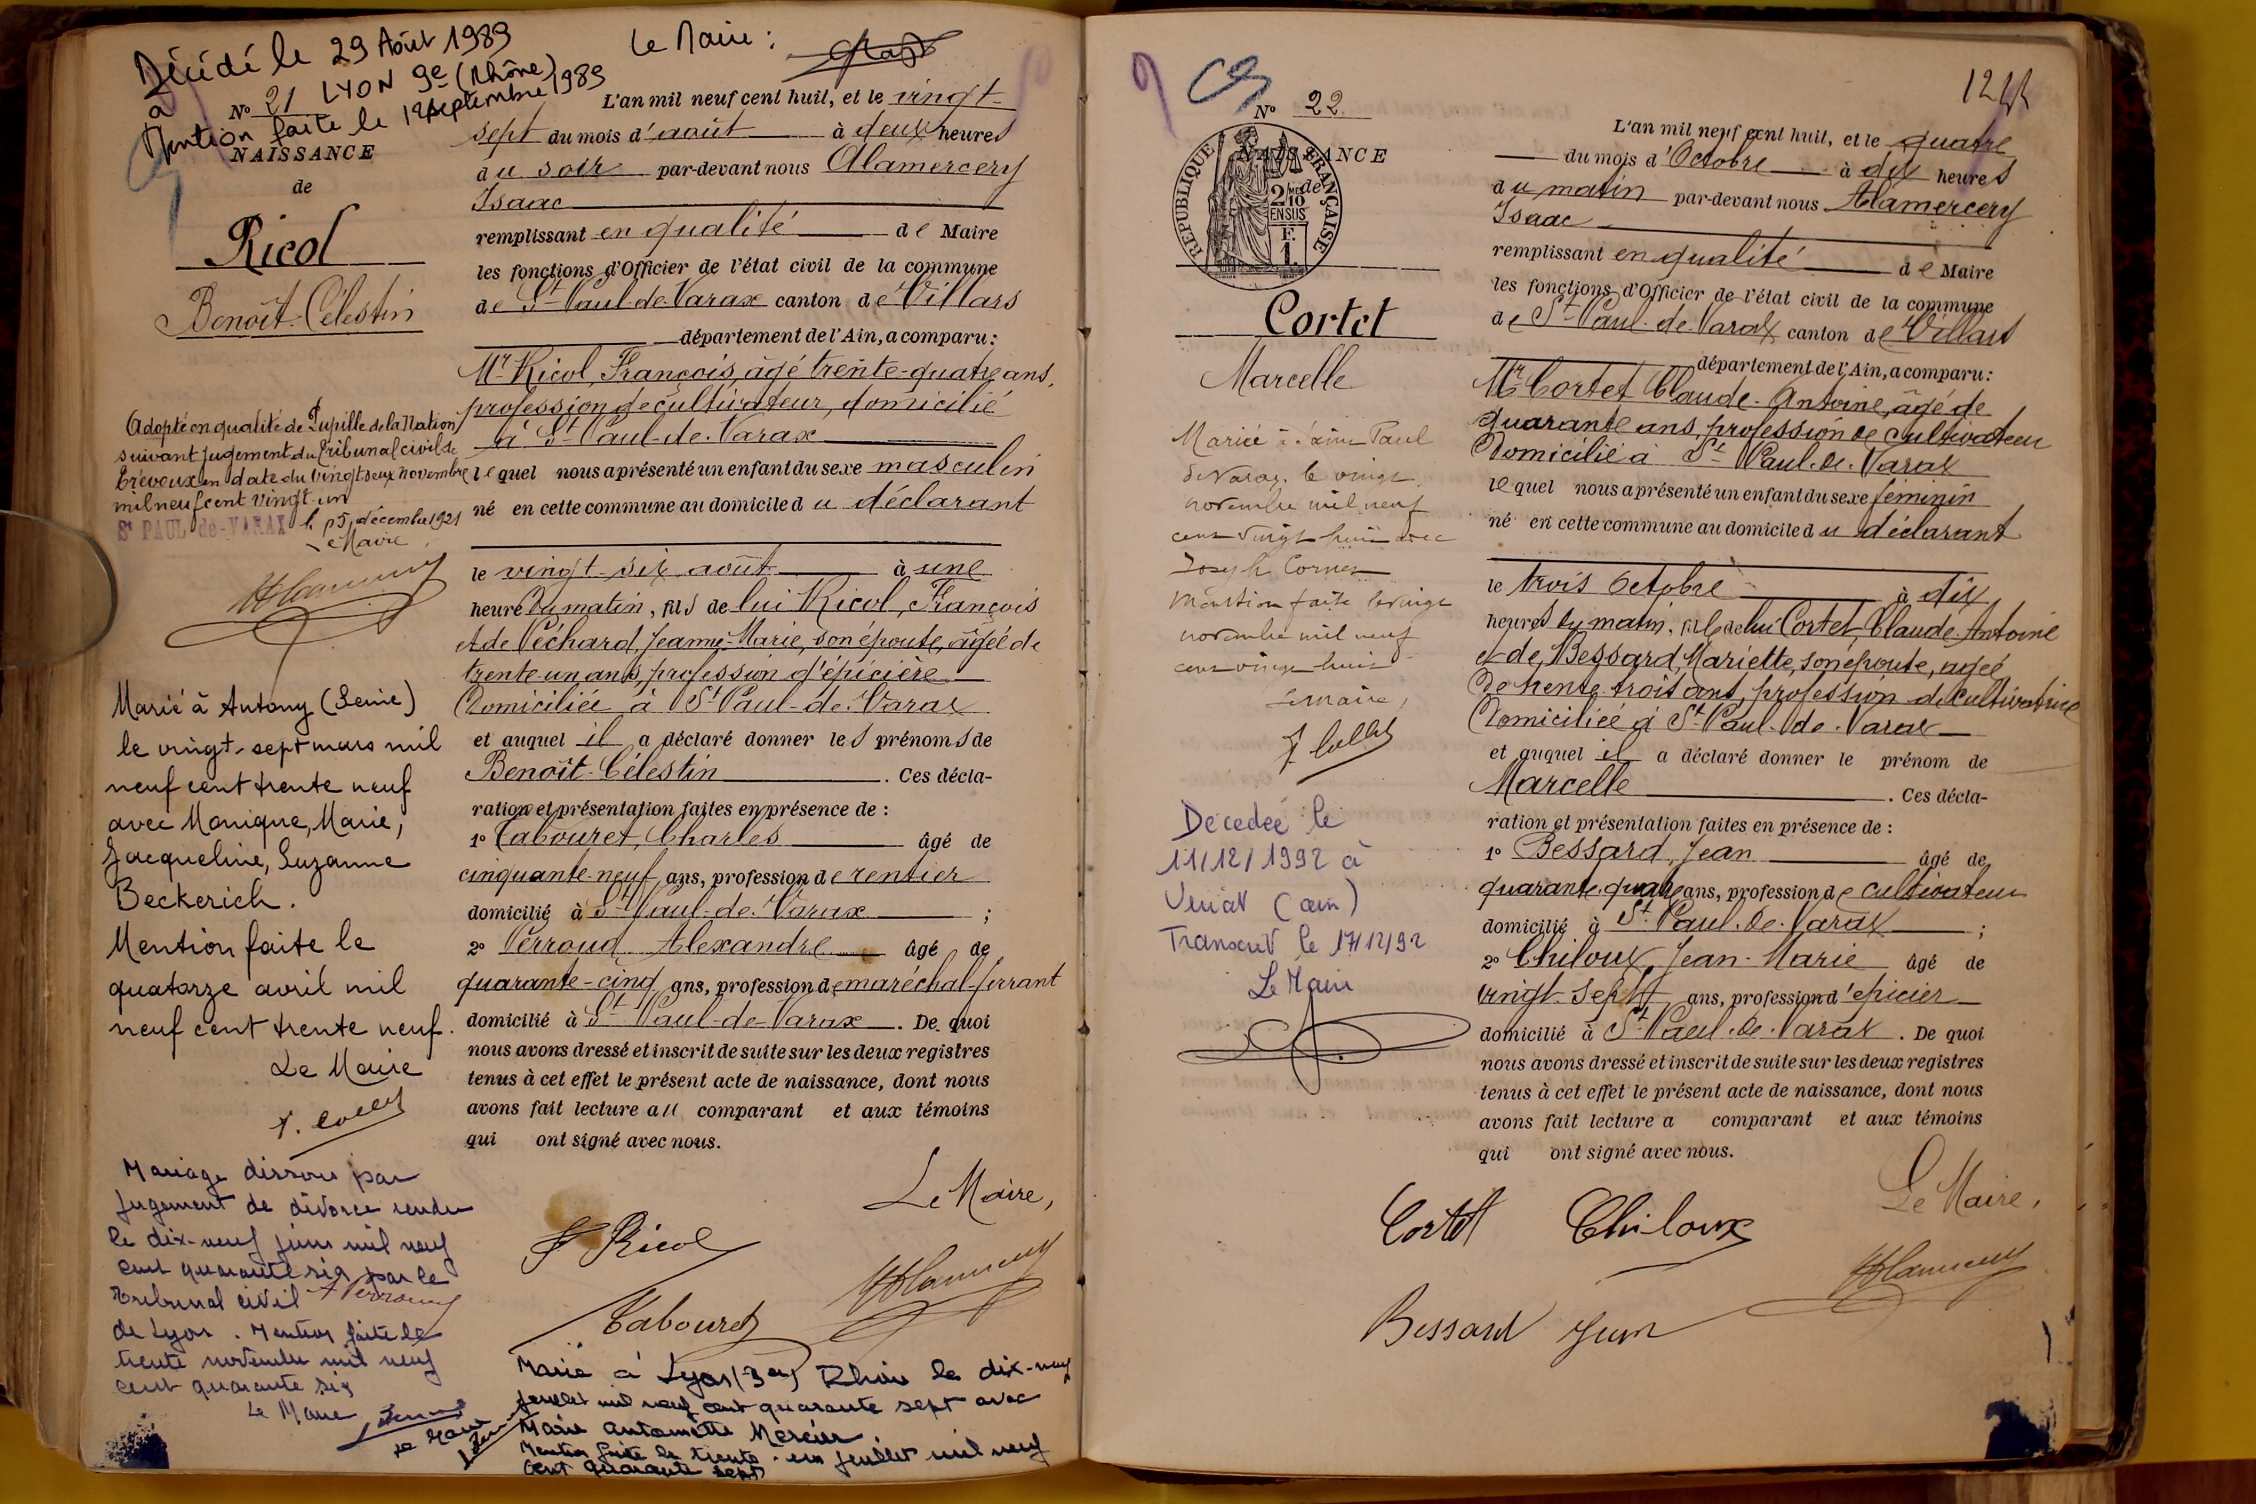 Décédé le 29 Août 1989
à LYON 9e (Rhône)
Mention faite le 12 septembre 1989
Le Maire :
No 21
NAISSANCE
de
Ricol
Benoît-Célestin
Adopté en qualité de Pupille de la Nation
suivant jugement du tribunal civil de
Trévoux en date du vingt deux novembre
mil neuf cent vingt un
St PAUL-de-VARAX le 15 décembre 1921
Le Maire
Marié à Antony (Seine)
le vingt-sept mars mil
neuf cent trente neuf
avec Monique, Marie,
Jacqueline, Suzanne
Beckerich.
Mention faite le
quatorze avril mil
neuf cent trente neuf.
Le Maire
Mariage dissous par
jugement de divorce rendu
le dix-neuf juin mil neuf
cent quarante six par le
Tribunal civil
de Lyon. Mention faite le
trente novembre mil neuf
cent quarante six
Le Maire
L'an mil neuf cent huit, et le vingt-
sept du mois d'août à deux heures
du soir par-devant nous Alamercery
Isaac
remplissant en qualité de Maire
les fonctions d'Officier de l'état civil de la commune
de St Paul-de-Varax canton de Villars
département de l'Ain, a comparu :
Mr Ricol, François, âgé trente-quatre ans,
profession de cultivateur, domicilié
à St Paul-de-Varax
lequel nous a présenté un enfant du sexe masculin
né en cette commune au domicile du déclarant
le vingt-six août à une
heure du matin, fils de lui Ricol, François
et de Péchard, Jeanne-Marie, son épouse, âgée de
trente-un ans, profession d'épicière
domiciliée à St Paul-de-Varax
et auquel il a déclaré donner les prénoms de
Benoît-Célestin. Ces décla-
ration et présentation faites en présence de :
1o Tabouret, Charles âgé de
cinquante-neuf ans, profession de rentier
domicilié à St Paul-de-Varax ;
2o Perroud Alexandre âgé de
quarante-cinq ans, profession de maréchal-ferrant
domicilié à St Paul-de-Varax. De quoi
nous avons dressé et inscrit de suite sur les deux registres
tenus à cet effet le présent acte de naissance, dont nous
avons fait lecture au comparant et aux témoins
qui ont signé avec nous.
Le Maire,
F Ricol
Tabouret
Marié à Lyon (3e) Rhône le dix-neuf
juillet mil neuf cent quarante sept avec
Marie Antoinette Mercier
Mention faite le trente-un juillet mil neuf
cent quarante sept
Le Maire
No 22
NAISSANCE
de
RÉPUBLIQUE FRANÇAISE
2/10 EN SUS
F. 1.
Cortet
Marcelle
Mariée à Saint Paul
de Varax le vingt
novembre mil neuf
cent vingt huit avec
Joseph
Mention faite le vingt
novembre mil neuf
cent vingt huit
Le Maire,
Décédée le
11/12/1992 à
Viriat (Ain)
Transcrit le 17/12/92
Le Maire
L'an mil neuf cent huit, et le quatre
du mois d'Octobre à dix heures
du matin par-devant nous Alamercery
Isaac
remplissant en qualité de Maire
les fonctions d'Officier de l'état civil de la commune
de St Paul-de-Varax canton de Villars
département de l'Ain, a comparu :
Mr Cortet Claude-Antoine, âgé de
quarante ans, profession de cultivateur
domicilié à St Paul-de-Varax
lequel nous a présenté un enfant du sexe féminin
né en cette commune au domicile du déclarant
le trois Octobre à dix
heures du matin, fille de lui Cortet, Claude-Antoine
et de Bessard, Mariette, son épouse, âgée
de trente-trois ans, profession de cultivatrice
domiciliée à St Paul-de-Varax
et auquel il a déclaré donner le prénom de
Marcelle. Ces décla-
ration et présentation faites en présence de :
1o Bessard, Jean âgé de
quarante-quatre ans, profession de cultivateur
domicilié à St Paul-de-Varax ;
2o Chiloux, Jean-Marie âgé de
vingt-sept ans, profession d'épicier
domicilié à St Paul-de-Varax. De quoi
nous avons dressé et inscrit de suite sur les deux registres
tenus à cet effet le présent acte de naissance, dont nous
avons fait lecture a comparant et aux témoins
qui ont signé avec nous.
Le Maire,
Cortet Chiloux
Bessard Jean